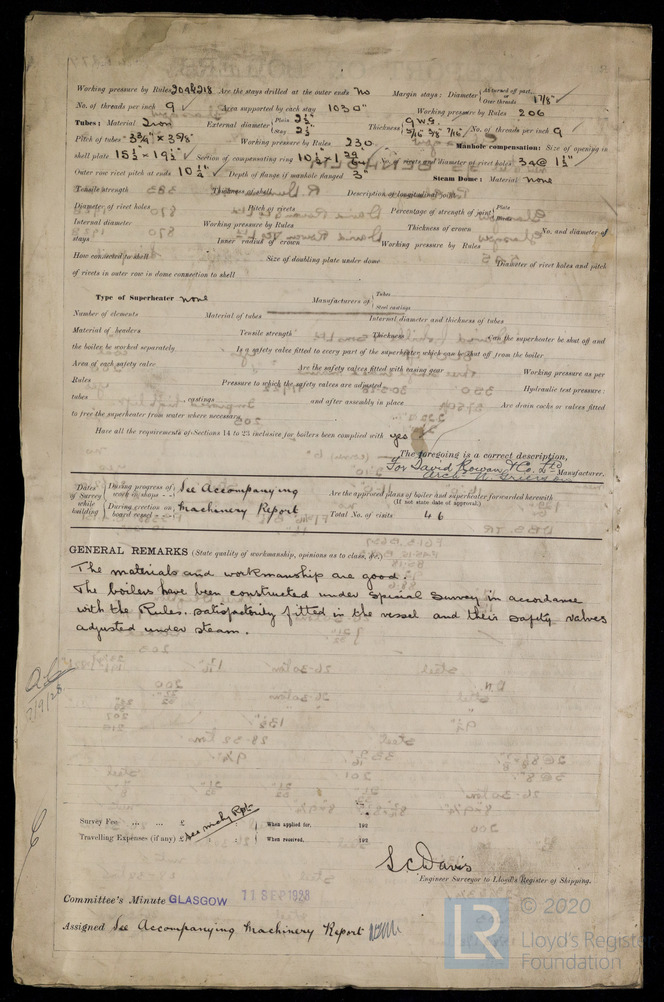 Working pressure by Rules 209 & 218 Are the stays drilled at the outer ends No Margin stays: Diameter { At turned off part, or Over threads 1 7/8" ✓
No. of threads per inch 9 ✓ Area supported by each stay 103 □" Working pressure by Rules 206
Tubes: Material Iron External diameter { Plain 2½" Stay 2½" Thickness { 9 W.G. 5/16" 3/8" 7/16" ✓ No. of threads per inch 9
Pitch of tubes 3¾" x 3 5/8" Working pressure by Rules 230 Manhole compensation: Size of opening in
shell plate 15½" x 19½" ✓ Section of compensating ring No. of rivets and diameter of rivet holes 34 @ 1¼"
Outer row rivet pitch at ends 10¼" ✓ Depth of flange if manhole flanged 3" Steam Dome: Material None
Tensile strength Thickness of shell Description of longitudinal joint
Diameter of rivet holes Pitch of rivets Percentage of strength of joint { Plate
Internal diameter Working pressure by Rules Thickness of crown No. and diameter of
stays Inner radius of crown Working pressure by Rules
How connected to shell Size of doubling plate under dome Diameter of rivet holes and pitch
of rivets in outer row in dome connection to shell
Type of Superheater None Manufacturers of { Tubes Steel castings
Number of elements Material of tubes Internal diameter and thickness of tubes
Material of headers Tensile strength Thickness Can the superheater be shut off and
the boiler be worked separately Is a safety valve fitted to every part of the superheater which can be shut off from the boiler
Area of each safety valve Are the safety valves fitted with easing gear Working pressure as per
Rules Pressure to which the safety valves are adjusted Hydraulic test pressure:
tubes , castings and after assembly in place Are drain cocks or valves fitted
to free the superheater from water where necessary
Have all the requirements of Sections 14 to 23 inclusive for boilers been complied with yes ✓
The foregoing is a correct description,
For David Rowan & Co. Ltd Manufacturer.
Arch. W. Grierson
Dates of Survey while building { During progress of work in shops - - } See Accompanying Are the approved plans of boiler and superheater forwarded herewith
(If not state date of approval.)
During erection on board vessel - - } Machinery Report Total No. of visits 46
GENERAL REMARKS (State quality of workmanship, opinions as to class, &c.)
The materials and workmanship are good.
The boilers have been constructed under Special Survey in accordance
with the Rules, satisfactorily fitted in the vessel and their safety valves
adjusted under steam.
Survey Fee ... ... £ : : { When applied for, 192
Travelling Expenses (if any) £ : : { When received, 192
See Mchy Rpt.
S C Davis
Engineer Surveyor to Lloyd's Register of Shipping.
Committee's Minute GLASGOW 11 SEP 1928
Assigned See Accompanying Machinery Report
LR © 2020
Lloyd's Register
Foundation